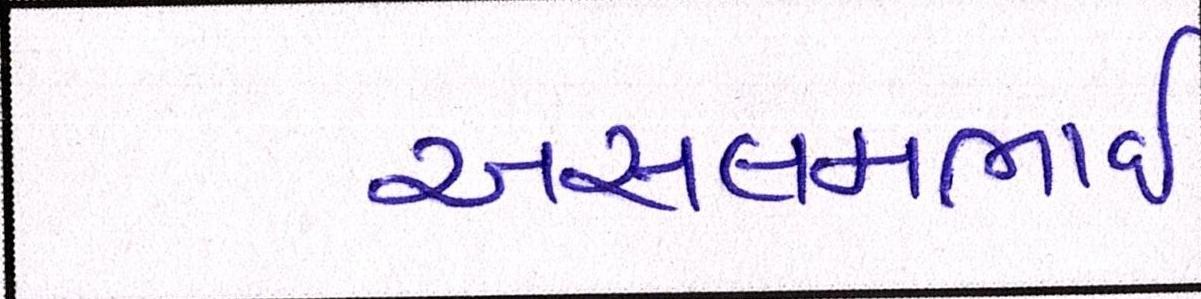 અસલમભાઈ